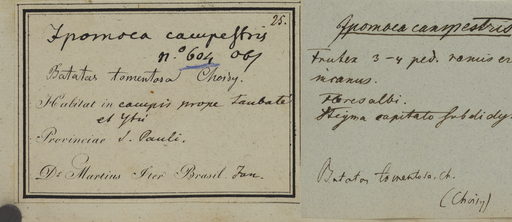 25.
Ipomoea campestris
n.º 604 obs
Batatas tomentosa Choisy.
Habitat in campis prope Taubaté
et Ytú
Provinciae S. Pauli.
Dr Martius Iter Brasil. Jan.
Ipomoea campestris
Frutex 3-4 ped. ramis
incanus.
Flores albi.
Stigma capitato subdidy
Batatas tomentosa. Ch.
(Choisy)